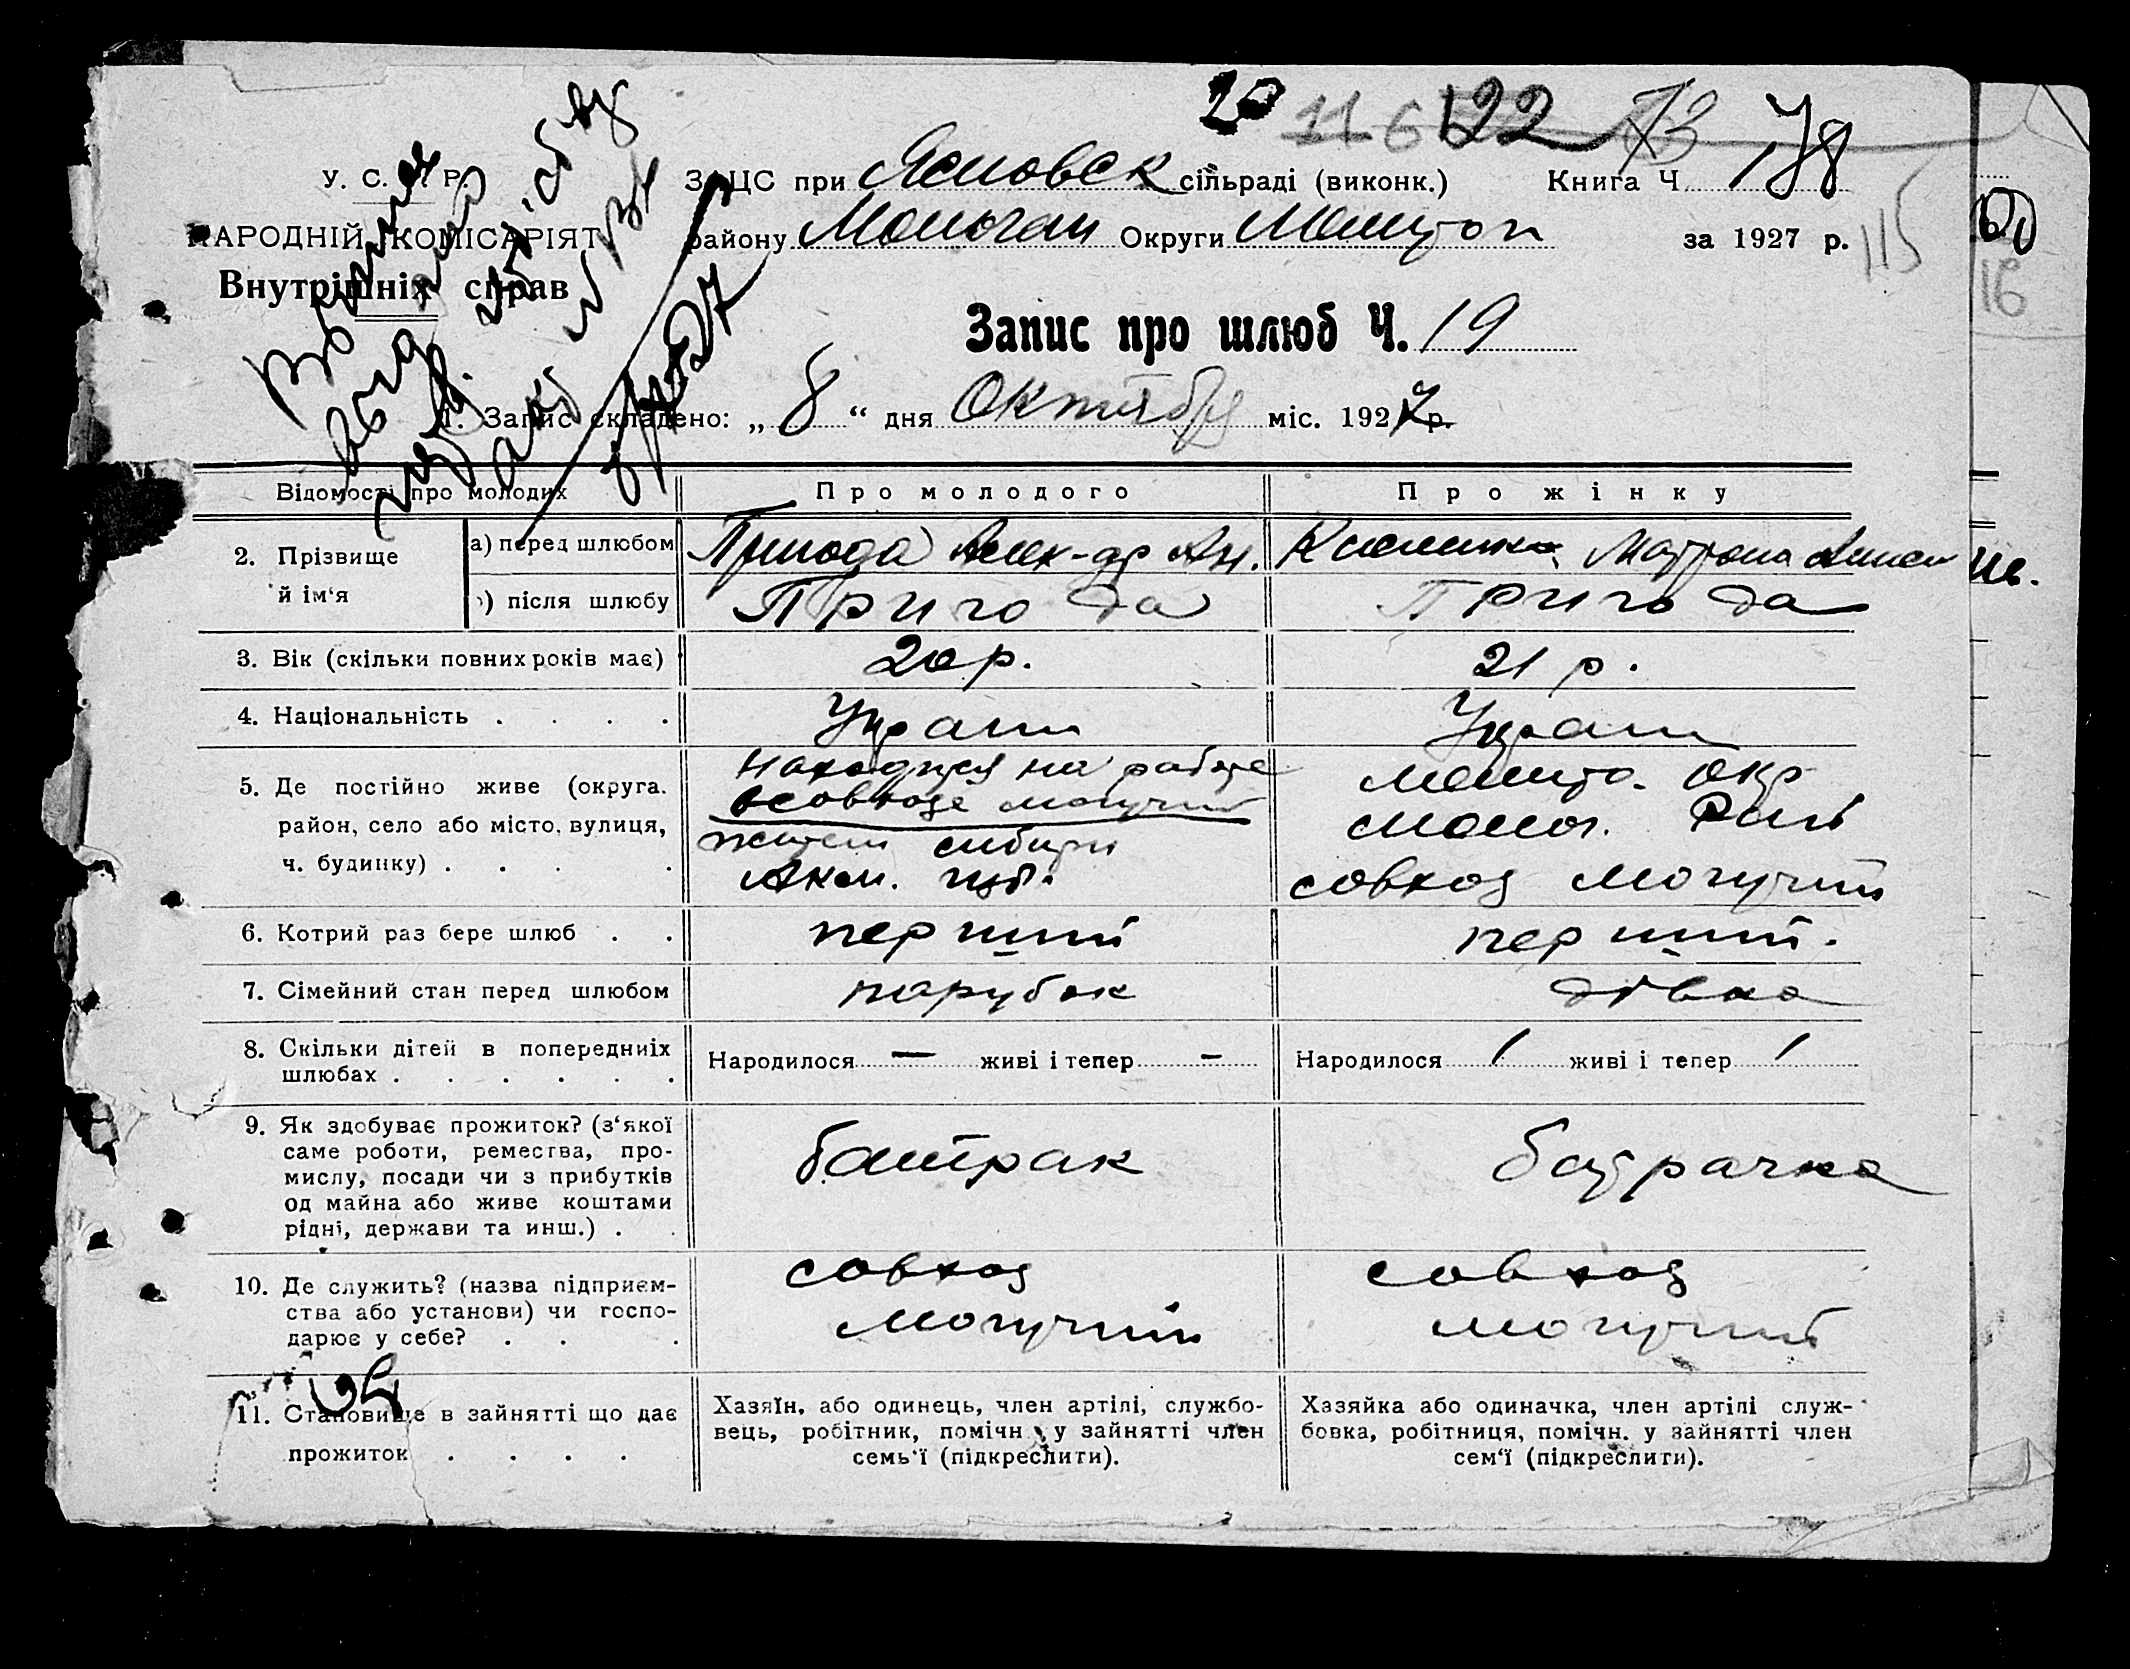 20 116 122 73 178
У. С. Р. Р.
ЗАЦС при Ясновск сільраді (виконк.) Книга Ч. 178
НАРОДНІЙ КОМІСАРІЯТ
району Молочан Округи Мелитоп за 1927 р. 115
Внутрішніх справ
Запис про шлюб Ч. 19
1. Запис складено: „ 8 “ дня Октября міс. 1927 р.
Відомості про молодих
Про молодого
Про жінку
2. Прізвище й ім‘я
а) перед шлюбом
Пригода Алек-др Ан.
Матрона
б) після шлюбу
Пригода
Пригода
3. Вік (скільки повних років має)
20 р.
21 р.
4. Національність . . . .
Украин
Украин
5. Де постійно живе (округа.
район, село або місто, вулиця,
ч. будинку) . . . .
находится на работе
в совхозе могучий
жители сибири
Акм. губ.
мелито. окр
молоч. Рай
совхоз Могучий
6. Котрий раз бере шлюб . .
перший
перший.
7. Сімейний стан перед шлюбом
парубок
дівка
8. Скільки дітей в попередниіх
шлюбах . . . . . .
Народилося — живі і тепер -
Народилося / живі і тепер /
9. Як здобуває прожиток? (з‘якої
саме роботи, ремества, про-
мислу, посади чи з прибутків
од майна або живе коштами
рідні, держави та инш.) . .
батрак
батрачка
10. Де служить? (назва підприєм-
ства або установи) чи госпо-
дарює у себе? . . .
совхоз
могучий
совхоз
могучий
11. Становище в зайнятті що дає
прожиток . . . .
Хазяїн, або одинець, член артілі, службо-
вець, робітник, помічн. у зайнятті член
семь‘ї (підкреслити).
Хазяйка або одиначка, член артілі служ-
бовка, робітниця, помічн. у зайнятті член
сем‘ї (підкреслити).